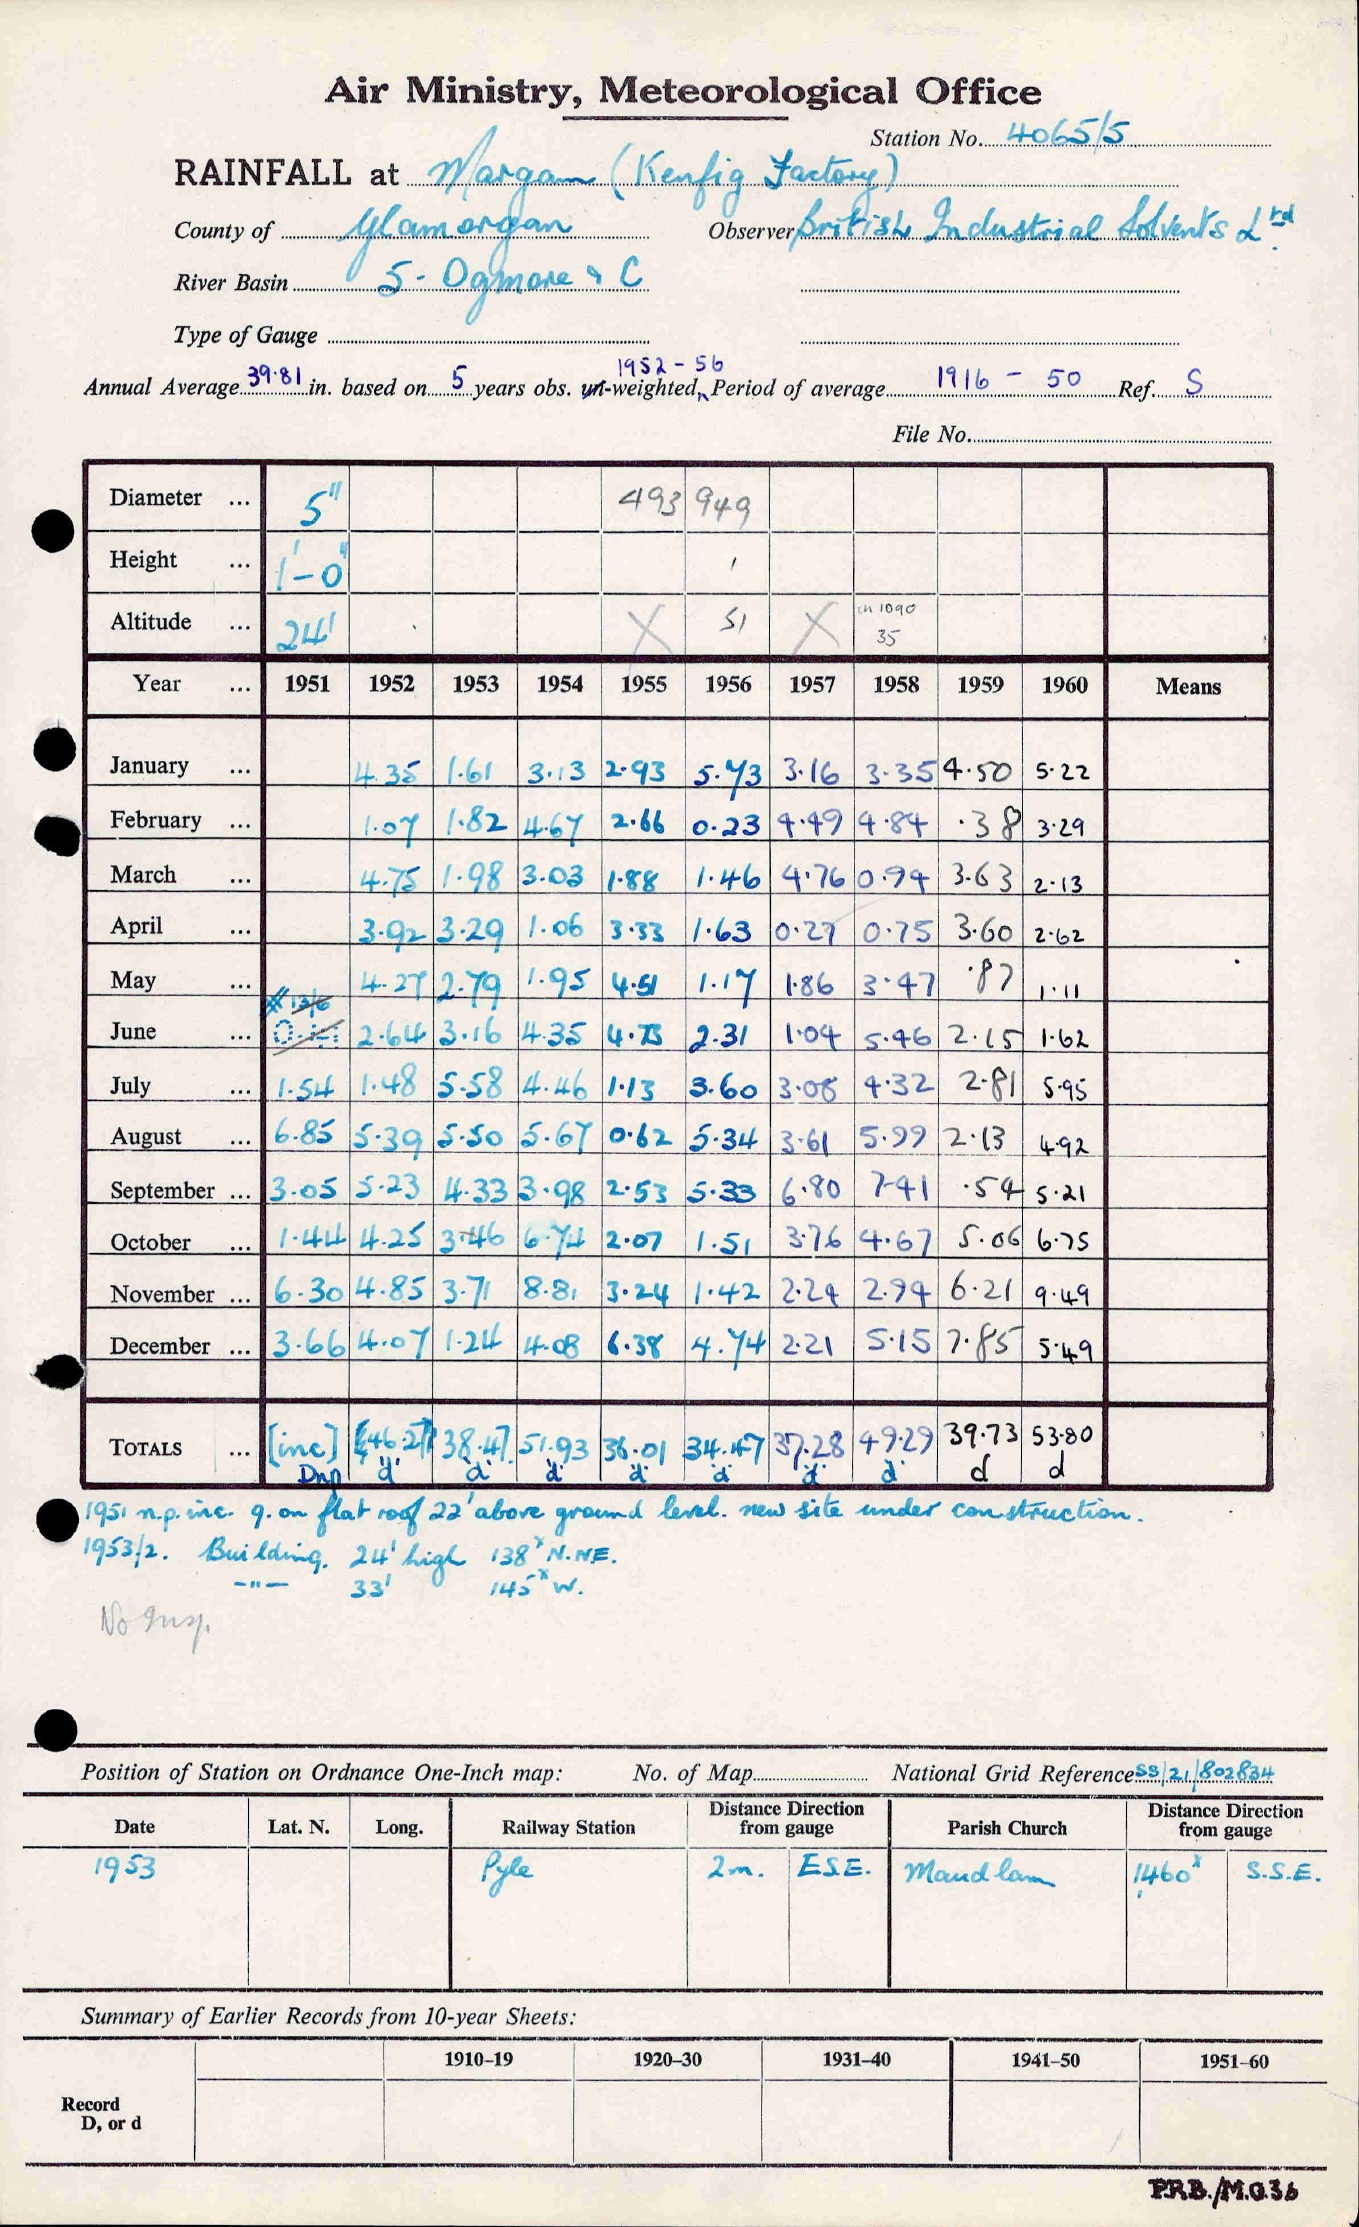 Air Ministry, Meteorological Office
Station No. 4065/5
RAINFALL at Margam (Kenfig Factory)
County of Glamorgan Observer British Industrial Solvents Ltd.
River Basin 5 - Ogmore & C
Type of Gauge
1952 - 56
Annual Average 39.81 in. based on 5 years obs. un-weighted, Period of average 1916 - 50 Ref. S
File No.
Diameter ... 5" 493 949
Height ... 1'-0"
Altitude ... 24' 51 1090 35
Year ... 1951 1952 1953 1954 1955 1956 1957 1958 1959 1960 Means
January ... 4.35 1.61 3.13 2.93 5.73 3.16 3.35 4.50 5.22
February ... 1.07 1.82 4.67 2.66 0.23 4.49 4.84 .38 3.29
March ... 4.75 1.98 3.03 1.88 1.46 4.76 0.94 3.63 2.13
April ... 3.92 3.29 1.06 3.33 1.63 0.27 0.75 3.60 2.62
May ... 4.27 2.79 1.95 4.51 1.17 1.86 3.47 .87 1.11
13/6
June ... 2.64 3.16 4.35 4.73 2.31 1.04 5.46 2.15 1.62
July ... 1.54 1.48 5.58 4.46 1.13 3.60 3.08 4.32 2.81 5.95
August ... 6.85 5.39 5.50 5.67 0.62 5.34 3.61 5.99 2.13 4.92
September ... 3.05 5.23 4.33 3.98 2.53 5.33 6.80 7.41 .54 5.21
October ... 1.44 4.25 3.46 6.74 2.07 1.51 3.76 4.67 5.06 6.75
November ... 6.30 4.85 3.71 8.81 3.24 1.42 2.24 2.94 6.21 9.49
December ... 3.66 4.07 1.24 4.08 6.38 4.74 2.21 5.15 7.85 5.49
TOTALS ... [inc] [46.27] 38.47 51.93 36.01 34.47 37.28 49.29 39.73 53.80
Dnp d d d d d d d d d
1951 n.p. inc. g. on flat roof 22' above ground level. new site under construction.
1953/2. Building. 24' high 138x N.NE.
-"- 33' 145x W.
No Insp.
Position of Station on Ordnance One-Inch map: No. of Map National Grid Reference SS/21/802834
Date Lat. N. Long. Railway Station Distance Direction from gauge Parish Church Distance Direction from gauge
1953 Pyle 2m. ESE. Maudlam 1460x S.S.E.
Summary of Earlier Records from 10-year Sheets:
1910–19 1920–30 1931–40 1941–50 1951–60
Record
D, or d
P.R.B./M.O.36